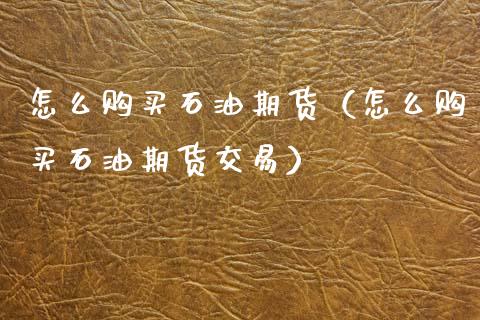 怎么购买石油期货（怎么购
买石油期货交易）